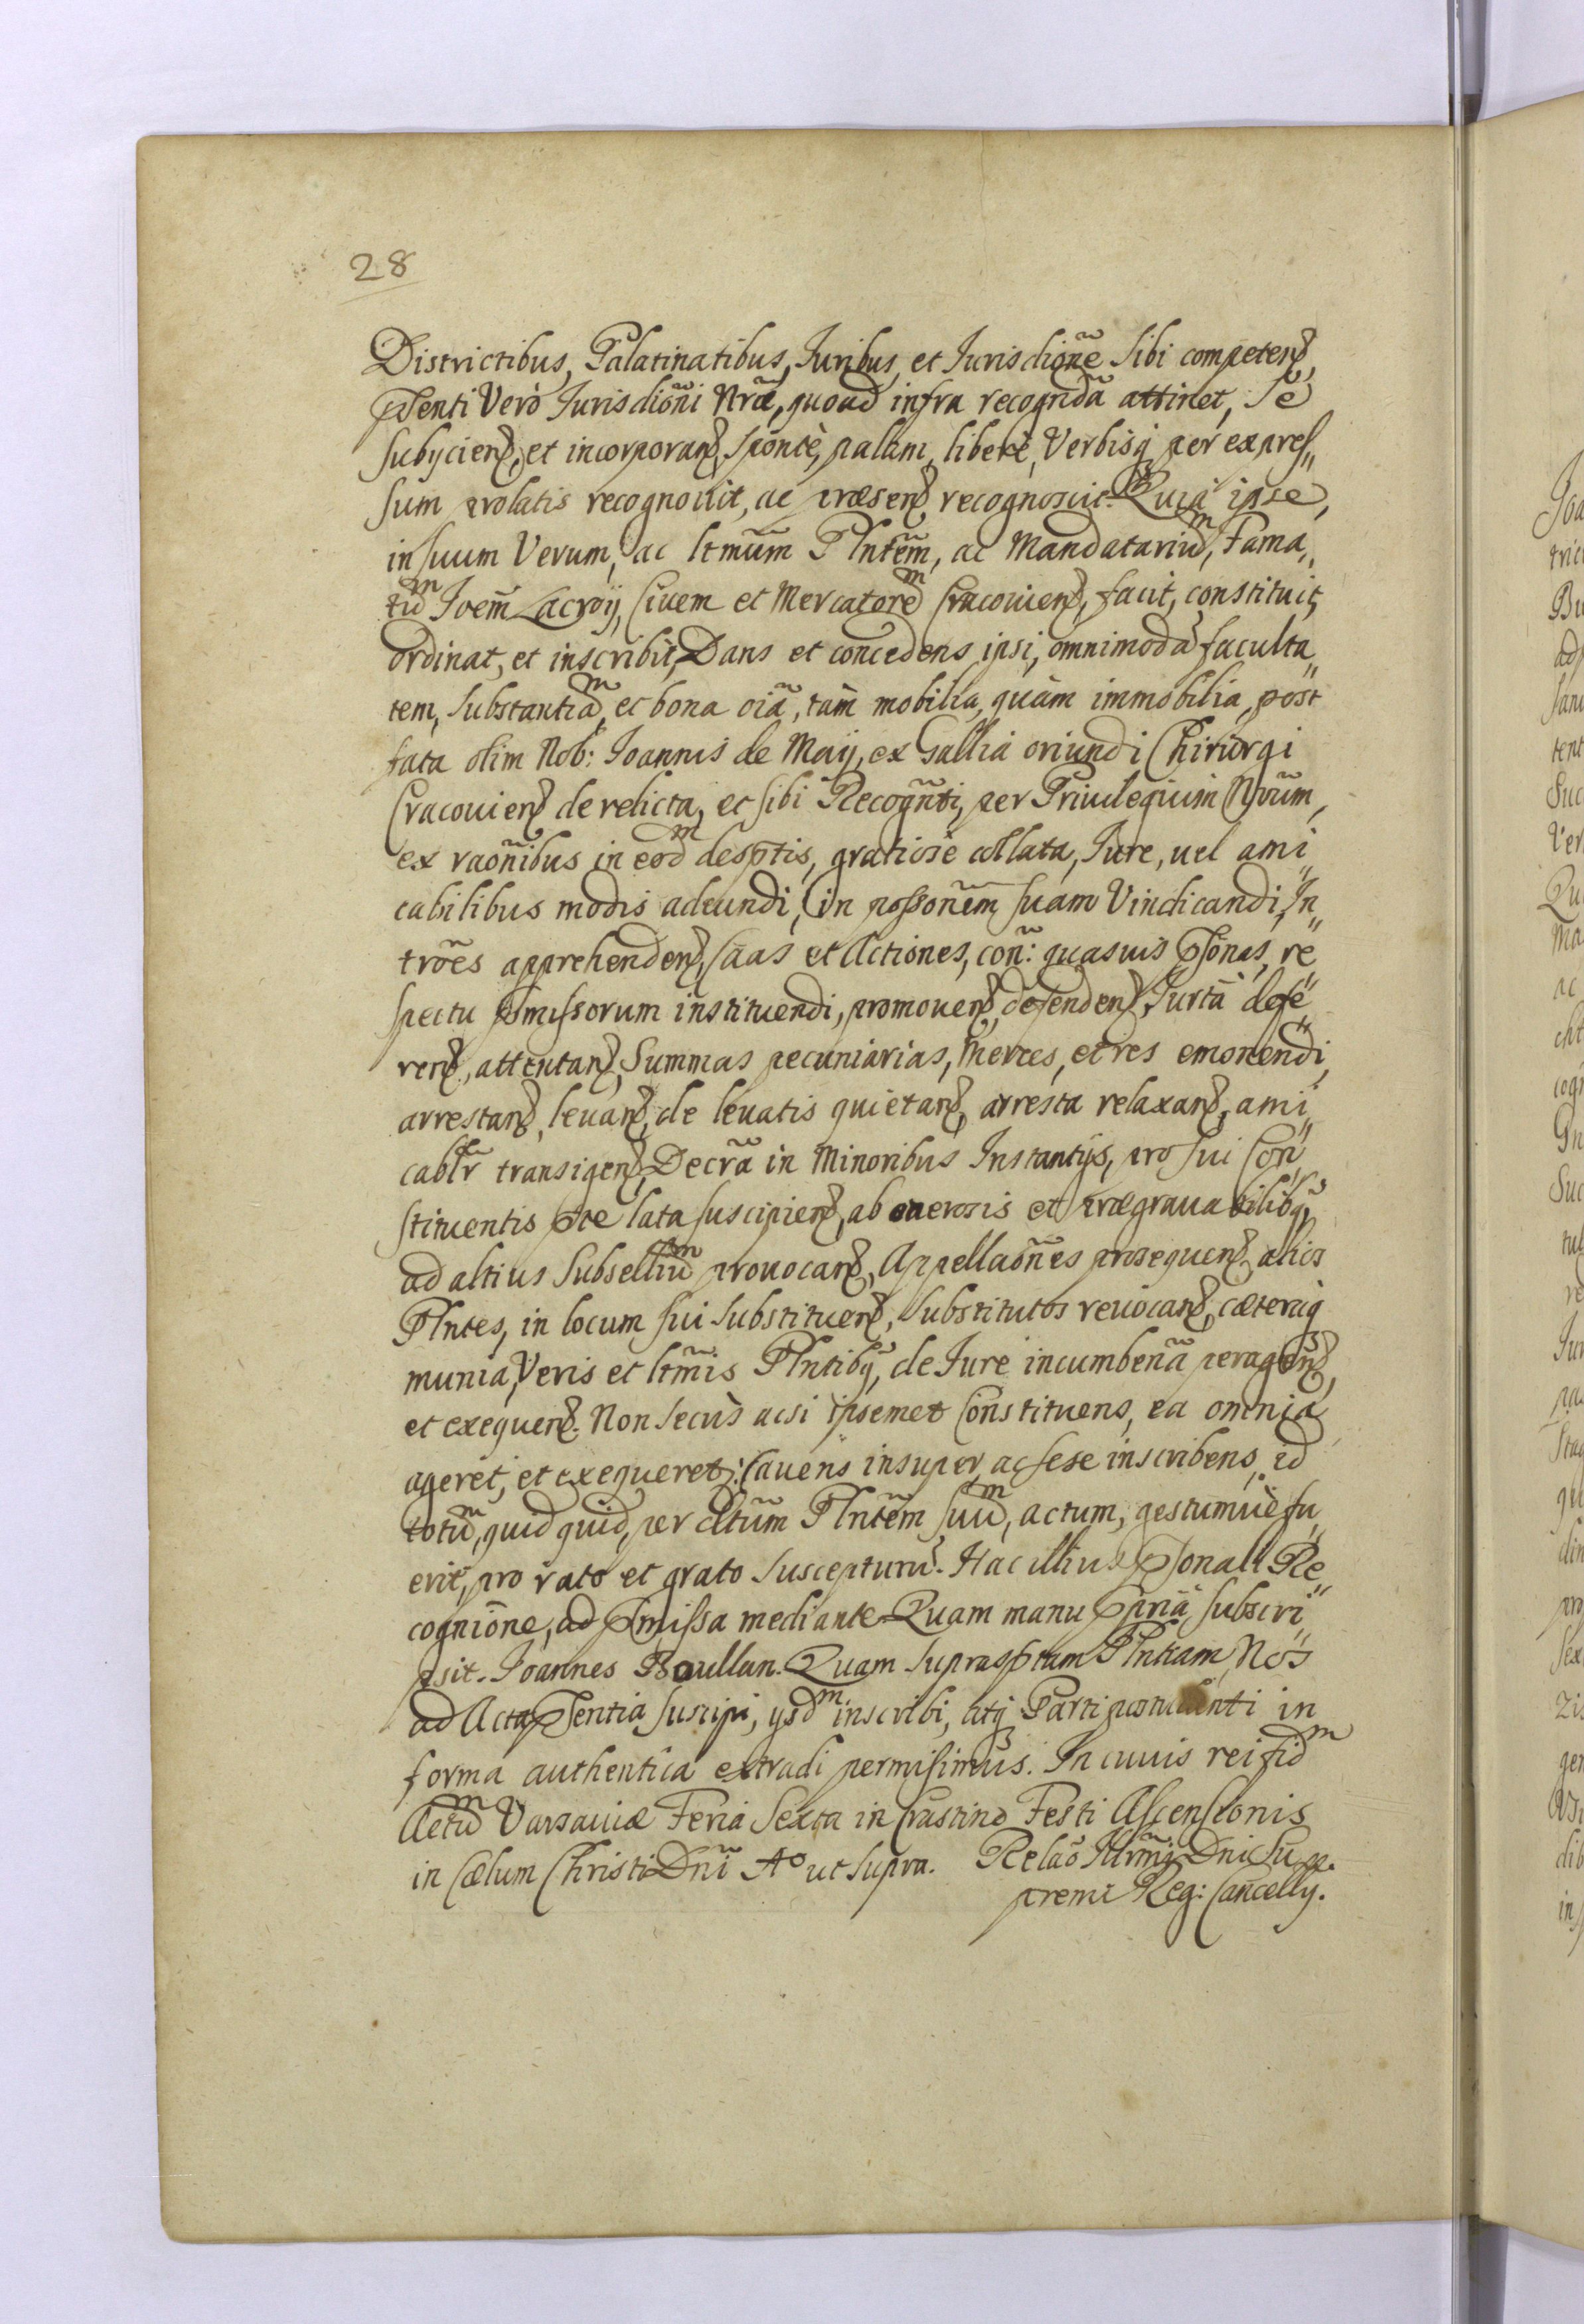 28
Districtibus, Palatinatibus, Iuribus, et Iurisdiõne sibi competen͠,
p̃senti Verò Iurisdiõni Nr̃æ, quoad infra recognd̃a attinet, se
subÿcien͠, et incorporan͠, spontè, palàm, liberè, Verbisq; per expres„
sum prolatis recognovit, ac præsen͠ recognoscit. Quia ipse,
in suum Verum, ac ltm̃um Plnt̃em, ac Mandatariũm, Fama„
tũm Joem̃ Lacroÿ, Civem et Mercatorem̃ Cracovien͠, facit, constituit,
ordinat, et inscribit, Dans et concedens ipsi, omnimodã faculta„
tem, substantiam̃, et bona oĩa, tàm mobilia, quàm immobilia, post
fata olim Nob: Joannis de Maÿ, ex Gallia oriundi Chirurgi
Cracovien͠ derelicta, et sibi Recogñti, per Privilegium Nr̃um,
ex raoñibus in eodm̃ desp̃tis, gratiosè collata, Jure, vel ami„
cabilibus modis adeundi, in possoñem suam Vindicandi, In„
trões apprehenden͠, Cãas et Actiones, coñ: quasvis P̃sonas, re„
spectu p̃missorum instituendi, promoven͠, defenden͠, Iurtã defe„
ren͠, attentan͠, Summas pecuniarias, Merces, et res emonendi,
arrestan͠, levan͠, de levatis quietan͠, arresta relaxan͠, ami„
cabĩr transigen͠, Decrã in Minoribus Instantÿs, pro sui Con„
stituentis p̃te lata suscipien͠, ab onerosis et prægravabilibq;
ad altius Subselliũm provocan͠, Appellaoñes prosequen͠, alios
Plñtes, in locum sui substituen͠, substitutos revocan͠, cæteraq;
munia, Veris et ltm̃is Plntibq;, de Iure incumbeñã peragen͠,
et exequen͠. Non secùs acsi ipsemet Constituens, ea omnia
ageret, et exequeret̃: Cavens insuper ac sese inscribens, id
totũm, quidquid, per dtũm Plntẽm suũm, actum, gestumvè fu„
erit, pro rato et grato suscepturũ. Hac illius p̃sonali Re„
cognioñe, ad p̃missa mediante. Quam manu p̃priã subscri„
psit. Joannes Boullan. Quam suprasp̃tam Plntiam Nos
ad Acta p̃sentia suscipi, ÿsdm̃ inscribi, atq; Parti postulanti in
forma authentica extradi permisimus. In cuius rei fidm̃
Actũm Varsaviæ Feria Sexta in Crastino Festi Ascensionis
in Cælum Christi Dnĩ Aº ut supra. Relaõ Illrm̃i Dni Su„
premi Reg: Cancellÿ.